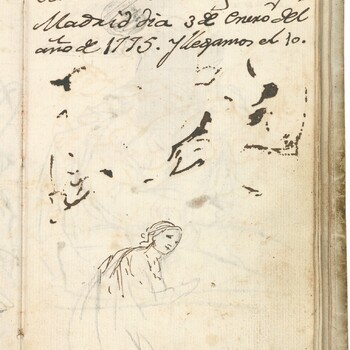 Madrid dia 3 de Enero del
año de 1775. y llegamos el 10.